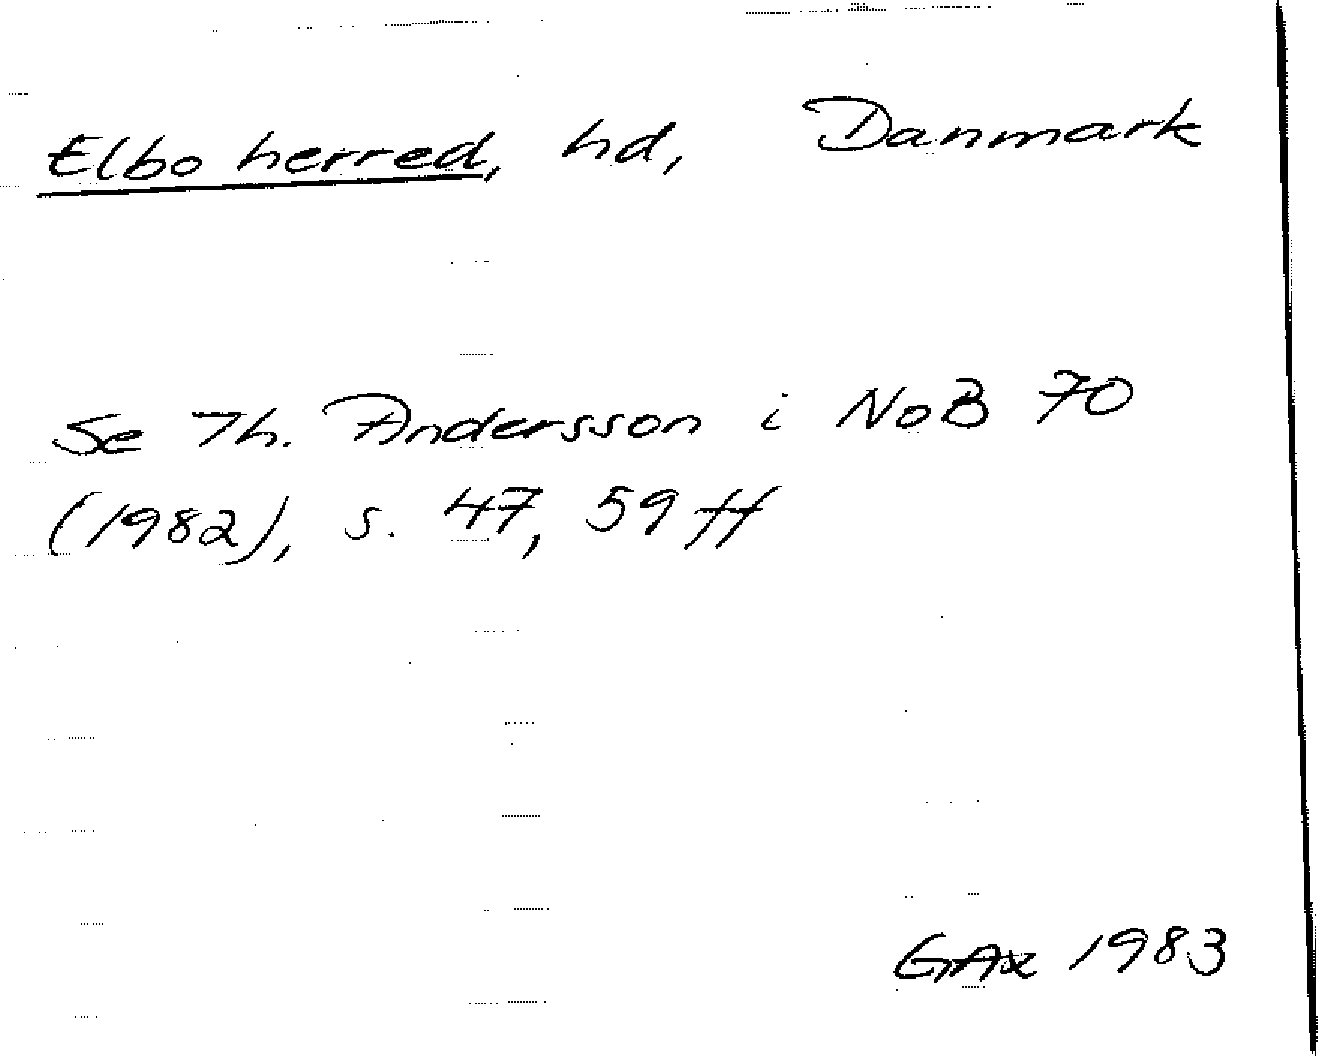 Elbo herred, hd, Danmark
Se Th. Andersson i NoB 70
(1982), s. 47, 59 ff
GAx 1983